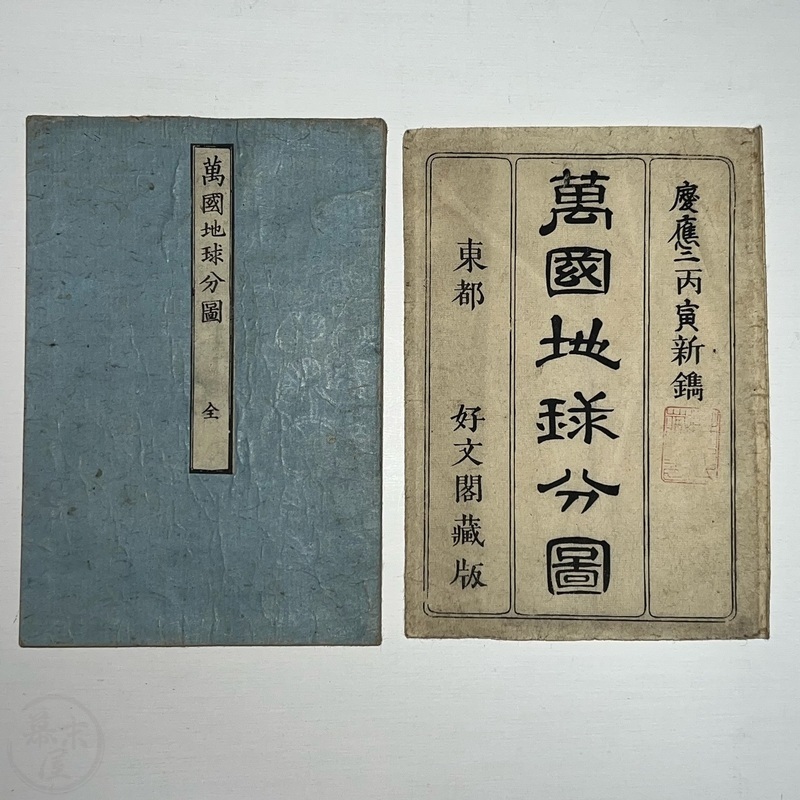 萬國地球分圖 全
慶應二丙寅新鐫
萬國地球分圖
東都 好文閣藏版
幕末屋